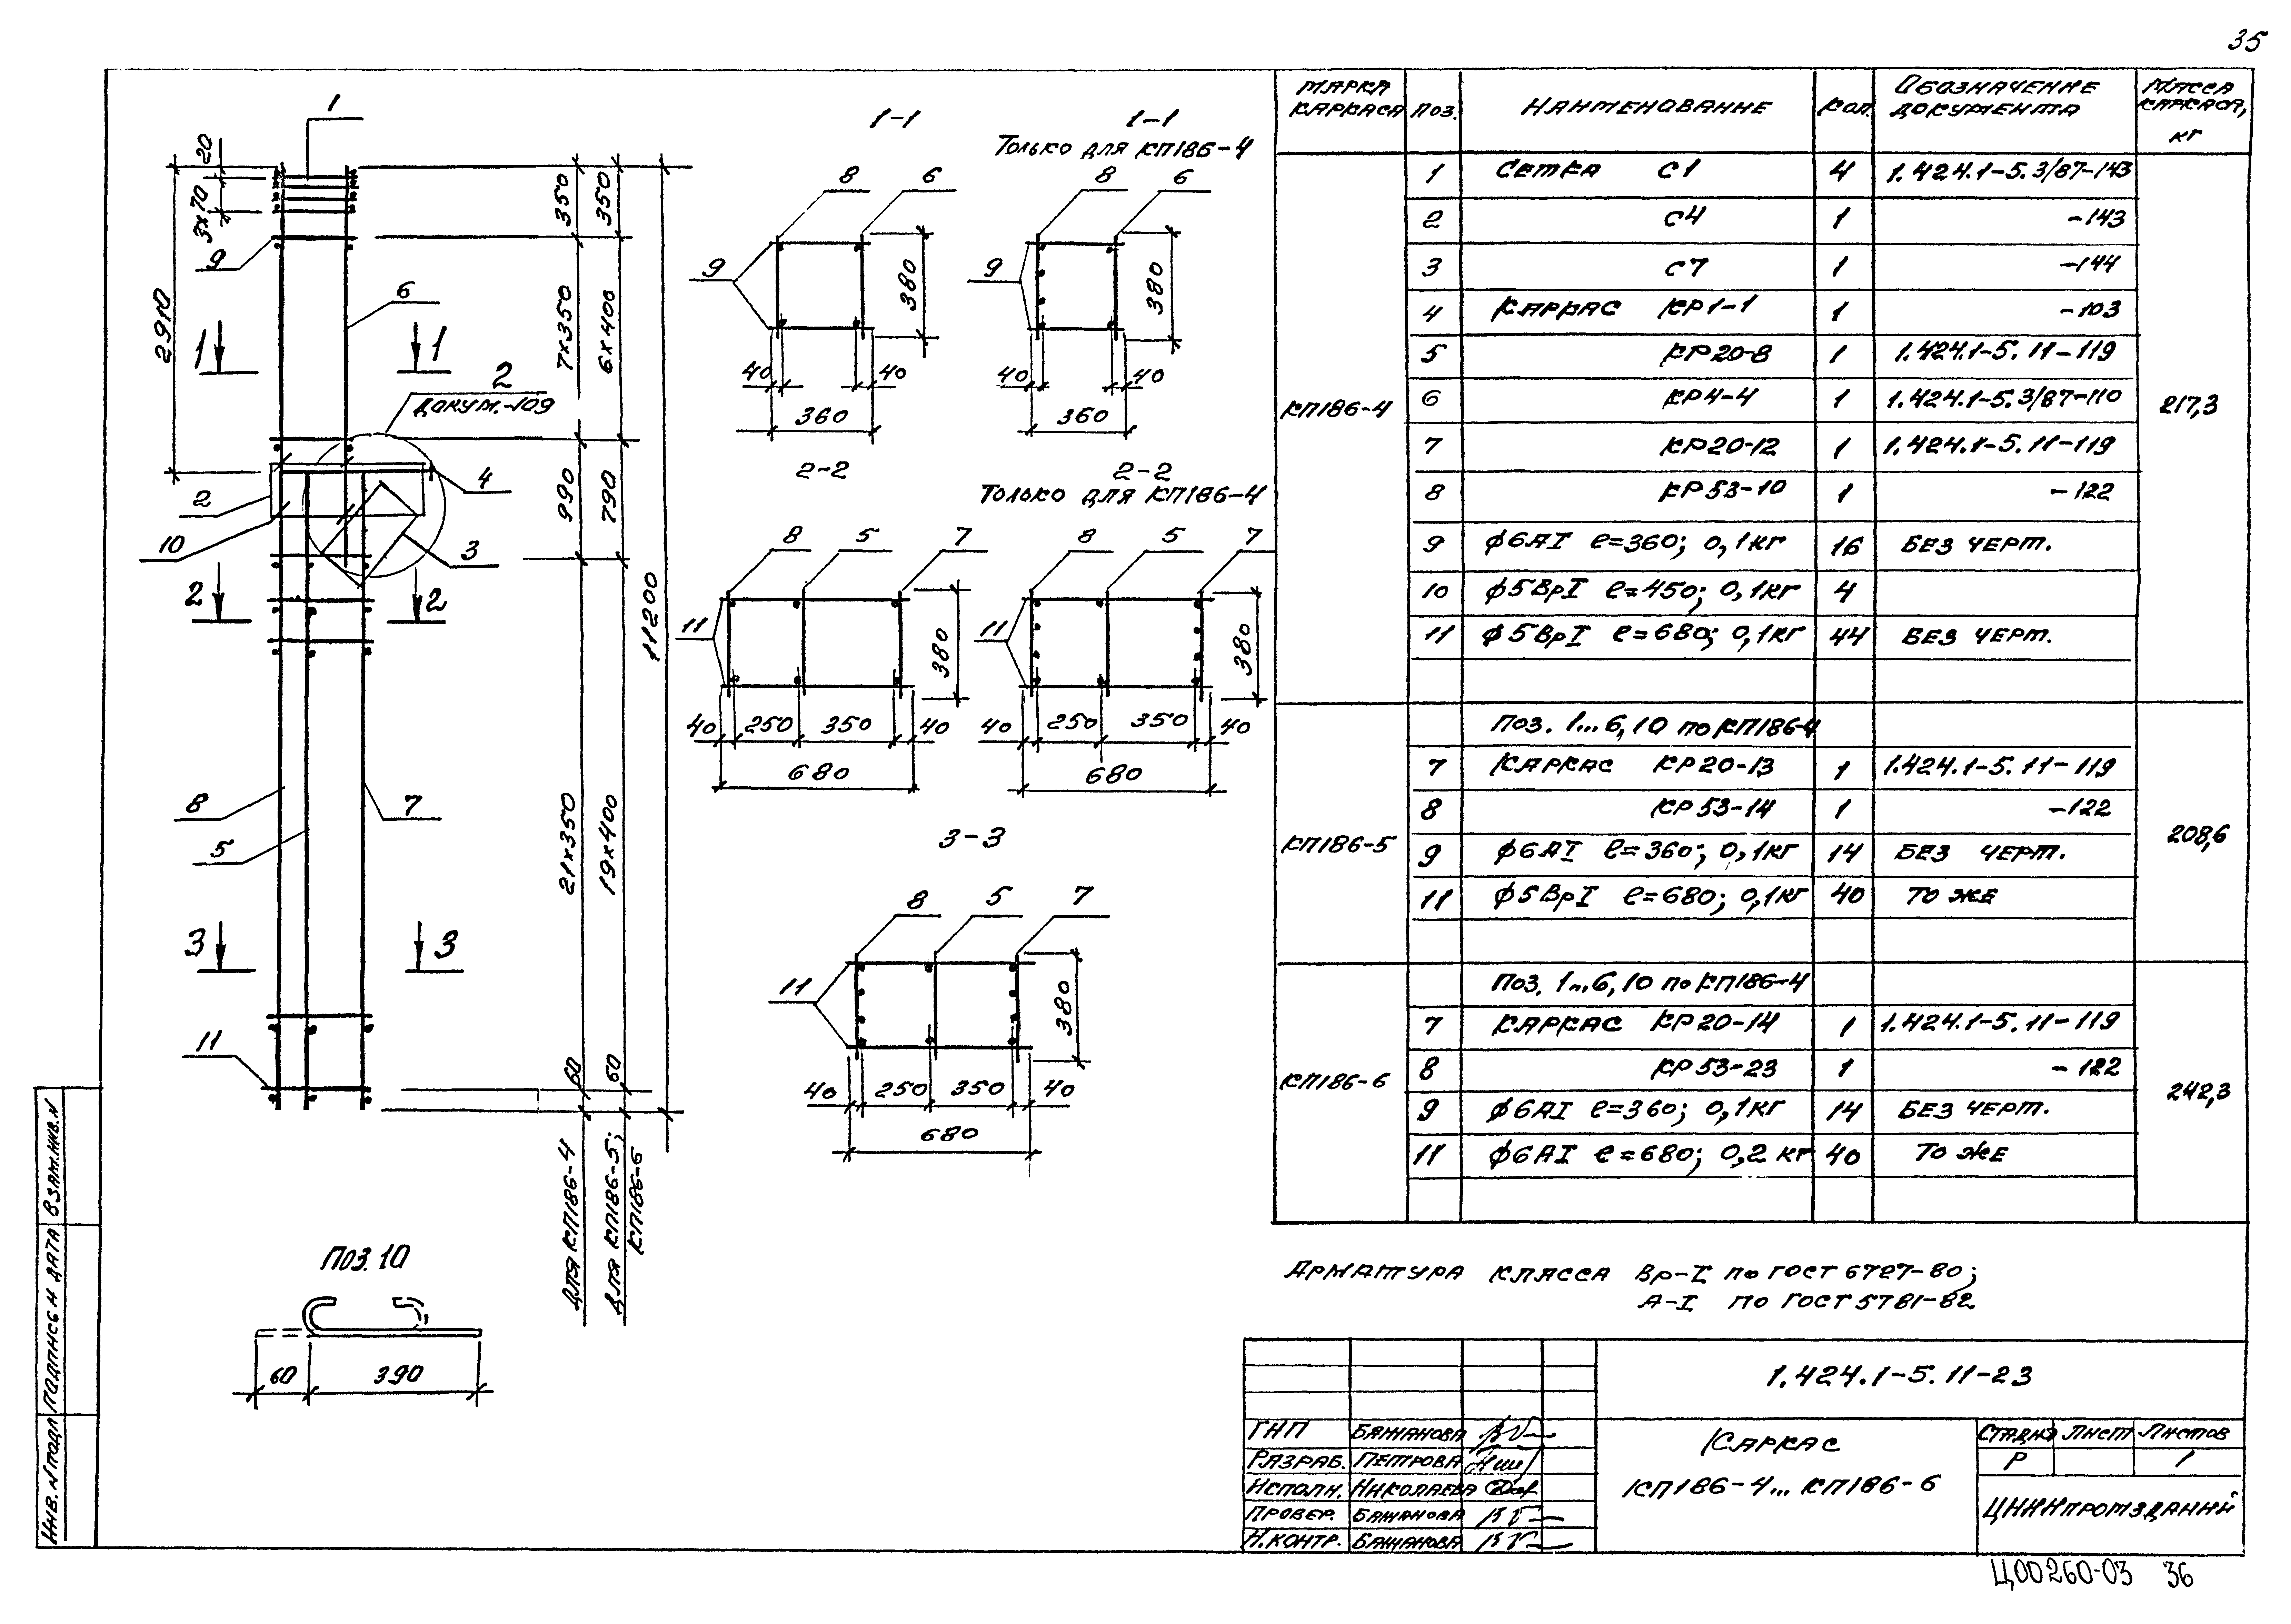 35
МАРКА КАРКАСА
ПОЗ.
НАИМЕНОВАНИЕ
КОЛ.
ОБОЗНАЧЕНИЕ ДОКУМЕНТА
МАССА КАРКАСА, КГ
КП186-4
217,3
1 СЕТКА С1 4 1.424.1-5.3/87-143
2 С4 1 -143
3 С7 1 -144
4 КАРКАС КР1-1 1 -103
5 КР20-8 1 1.424.1-5.11-119
6 КР4-4 1 1.424.1-5.3/87-110
7 КР20-12 1 1.424.1-5.11-119
8 КР53-10 1 -122
9 ϕ6АI ℓ=360; 0,1кг 16 БЕЗ ЧЕРТ.
10 ϕ5ВрI ℓ=450; 0,1кг 4
11 ϕ5ВрI ℓ=680; 0,1кг 44 БЕЗ ЧЕРТ.
КП186-5
208,6
ПОЗ. 1...6,10 по КП186-4
7 КАРКАС КР20-13 1 1.424.1-5.11-119
8 КР53-14 1 -122
9 ϕ6АI ℓ=360; 0,1кг 14 БЕЗ ЧЕРТ.
11 ϕ5ВрI ℓ=680; 0,1кг 40 ТО ЖЕ
КП186-6
242,3
ПОЗ. 1...6,10 по КП186-4
7 КАРКАС КР20-14 1 1.424.1-5.11-119
8 КР53-23 1 -122
9 ϕ6АI ℓ=360; 0,1кг 14 БЕЗ ЧЕРТ.
11 ϕ6АI ℓ=680; 0,2 кг 40 ТО ЖЕ
АРМАТУРА КЛАССА Вр-I по ГОСТ 6727-80;
А-I по ГОСТ 5781-82
1
20
3х70
2910
9
6
1 1
2
ДОКУМ.-109
2
4
10
3
2 2
8
5
7
3 3
11
350
350
7х350
6х400
990
790
11200
21х350
19х400
60
60
ДЛЯ КП186-4
ДЛЯ КП186-5;
КП186-6
1-1
8 6
9
380
40 40
360
1-1
Только для КП186-4
8 6
9
380
40 40
360
2-2
8 5 7
11
380
40 250 350 40
680
2-2
Только для КП186-4
8 5 7
11
380
40 250 350 40
680
3-3
8 5 7
11
380
40 250 350 40
680
ПОЗ. 10
60 390
ИНВ. N ПОДЛ
ПОДПИСЬ И ДАТА
ВЗАМ. ИНВ. N
1.424.1-5.11-23
ГИП БАЖАНОВА
РАЗРАБ. ПЕТРОВА
ИСПОЛН. НИКОЛАЕВА
ПРОВЕР. БАЖАНОВА
Н.КОНТР. БАЖАНОВА
КАРКАС
КП186-4... КП186-6
СТАДИЯ ЛИСТ ЛИСТОВ
Р 1
ЦНИИПРОМЗДАНИЙ
Ц00260-03 36